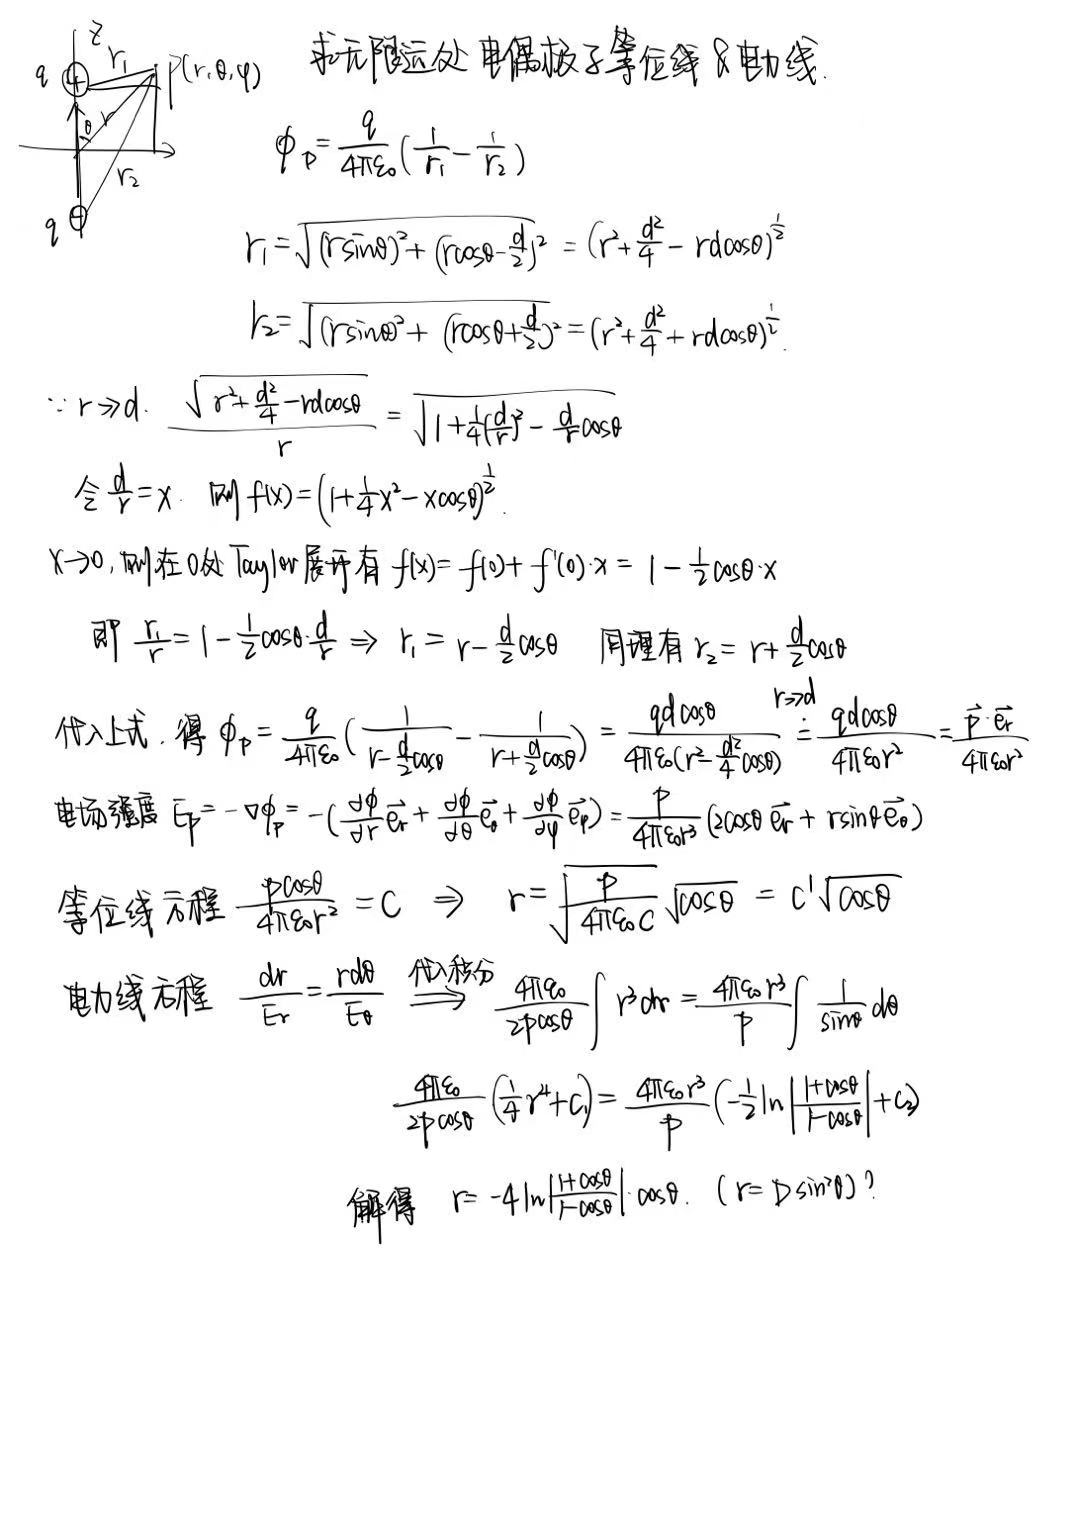 求无限远处电偶极子等位线&电力线.
z
q
+
r₁
P(r,θ,φ)
r
θ
r₂
q
−
φ_P = q/(4πε₀) (1/r₁ − 1/r₂)
r₁ = √((rsinθ)² + (rcosθ − d/2)²) = (r² + d²/4 − rdcosθ)^(1/2)
r₂ = √((rsinθ)² + (rcosθ + d/2)²) = (r² + d²/4 + rdcosθ)^(1/2).
∵ r≫d. √(r² + d²/4 − rdcosθ)/r = √(1 + 1/4(d/r)² − d/r cosθ)
令 d/r = x. 则 f(x) = (1 + 1/4 x² − xcosθ)^(1/2).
x→0, 则在0处Taylor展开有 f(x) = f(0) + f'(0)·x = 1 − 1/2 cosθ·x
即 r₁/r = 1 − 1/2 cosθ·d/r ⇒ r₁ = r − d/2 cosθ 同理有 r₂ = r + d/2 cosθ
代入上式, 得 φ_P = q/(4πε₀) (1/(r − d/2 cosθ) − 1/(r + d/2 cosθ)) = qdcosθ/(4πε₀(r² − d²/4 cosθ)) ≐(r≫d) qdcosθ/(4πε₀r²) = p⃗·e⃗r/(4πε₀r²)
电场强度 E_P = −∇φ_P = −(∂φ/∂r e⃗r + ∂φ/∂θ e⃗θ + ∂φ/∂φ e⃗φ) = P/(4πε₀r³) (2cosθ e⃗r + rsinθ e⃗θ)
等位线方程 pcosθ/(4πε₀r²) = C ⇒ r = √(P/(4πε₀C)) √cosθ = C'√cosθ
电力线方程 dr/Er = rdθ/Eθ ⇒(代入积分) 4πε₀/(2pcosθ) ∫ r³dr = 4πε₀r³/P ∫ 1/sinθ dθ
4πε₀/(2pcosθ) (1/4 r⁴ + C₁) = 4πε₀r³/P (−1/2 ln|(1+cosθ)/(1−cosθ)| + C₂)
解得 r = −4 ln|(1+cosθ)/(1−cosθ)|·cosθ. (r = D sin²θ)?